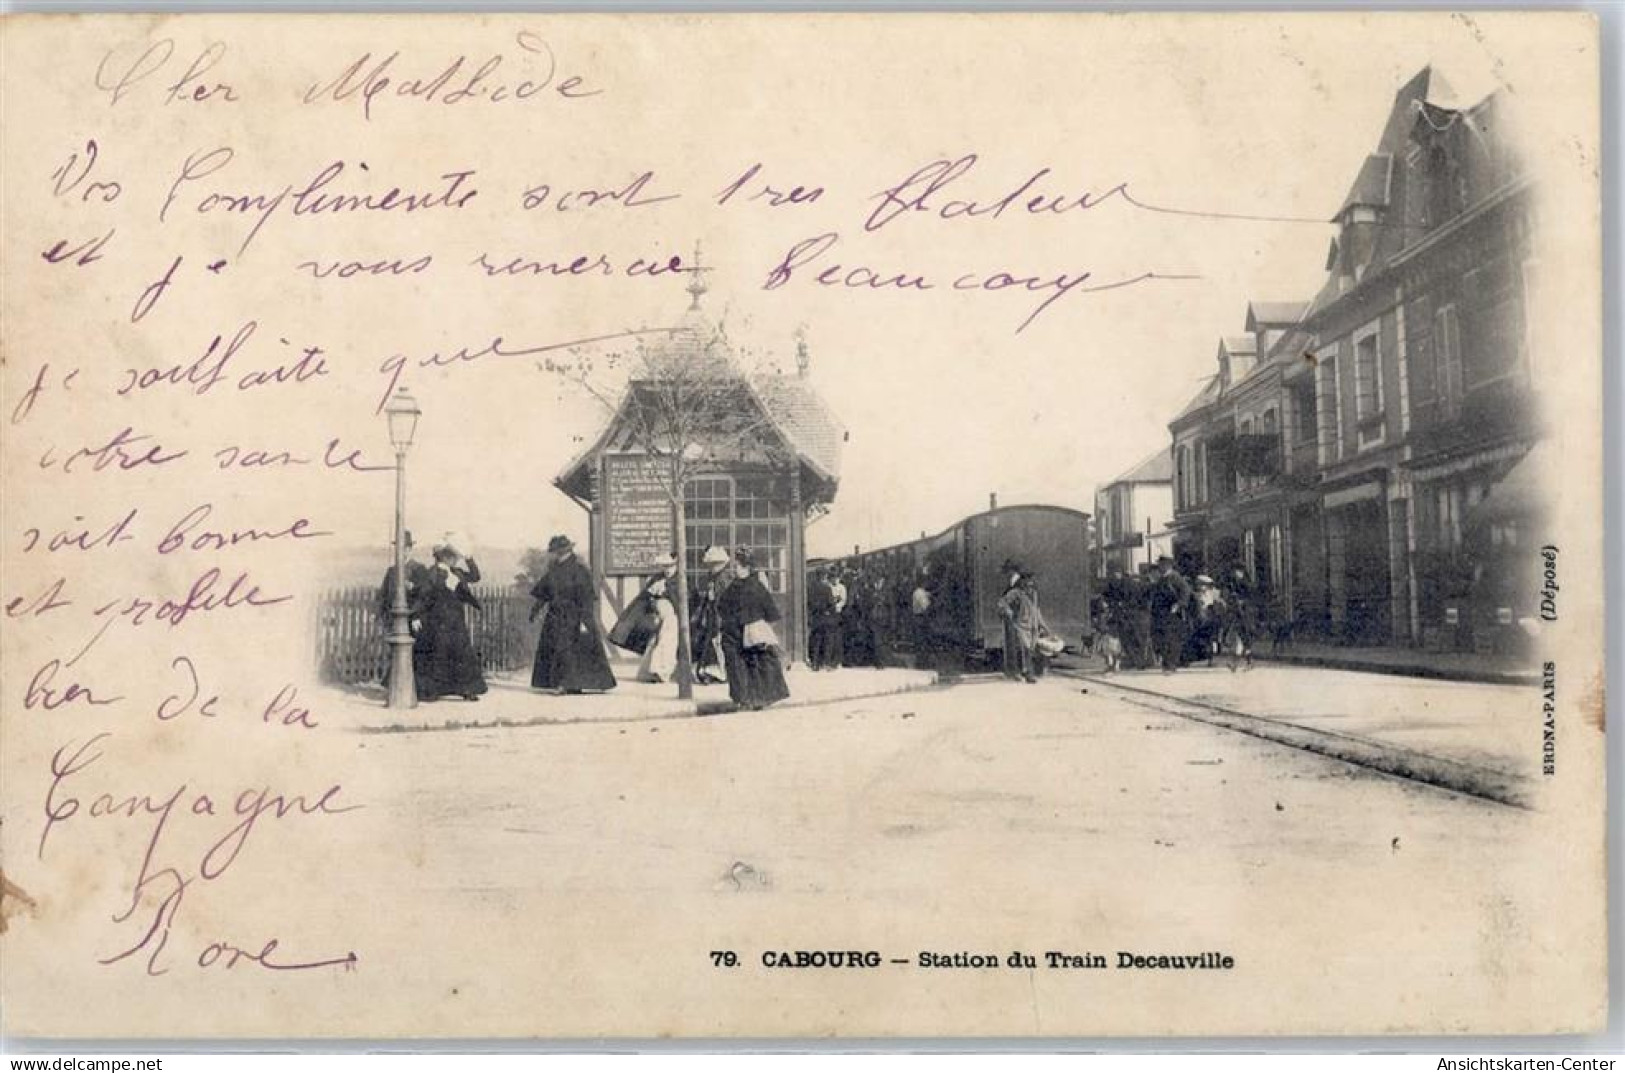 Cher Mathide
Vos Compliments sont tres flateur
et je vous remercie beaucoup
je souhaite que
votre sante
soit bonne
et profite
bien de la
Campagne
Rose.
79. CABOURG — Station du Train Decauville
ERDNA-PARIS (Déposé)
delcampe.net
the_seller_7
Ansichtskarten-Center